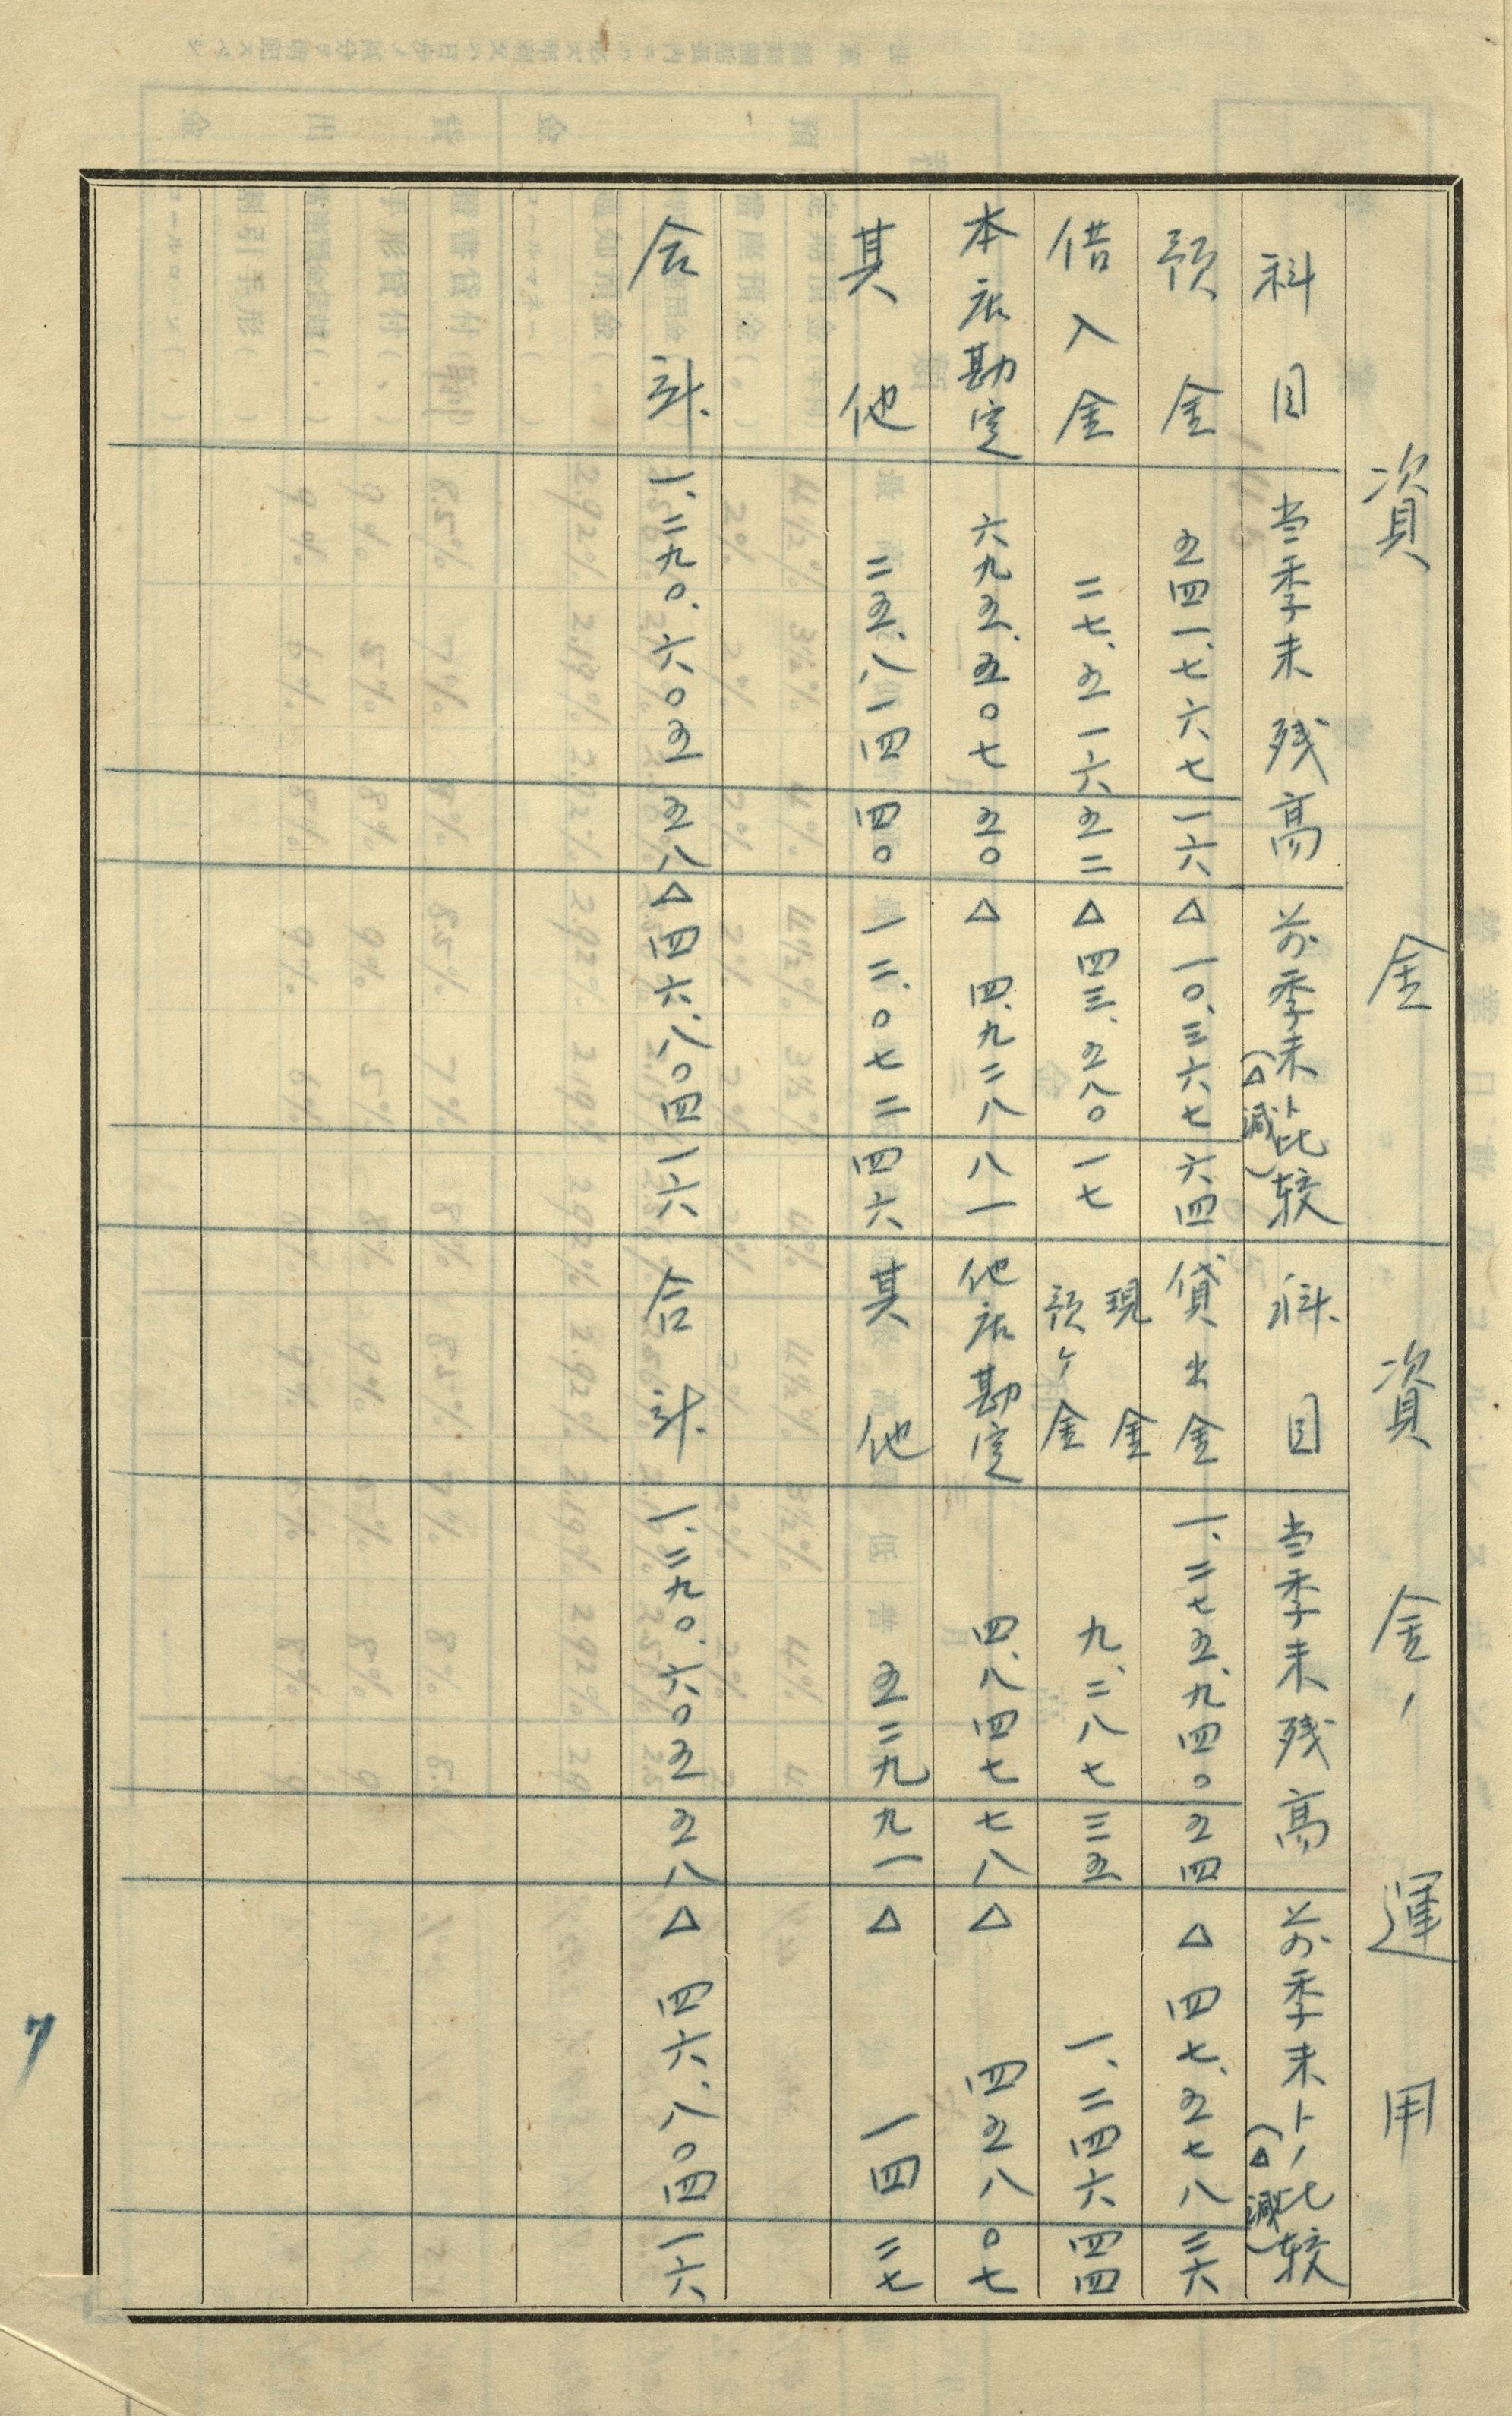 資金 資金ノ運用
科目 当季末残高 前季末ト比較(△減) 科目 当季末残高 前季末トノ比較(△減)
預金 五四一、七六七 一六 △一〇、三六七 六四 貸出金 一、二七五、九四〇 五四 △四七、五七八 三六
借入金 二七、五一六 五二 △四三、五八〇 一七 現金預ケ金 九、二八七 三五 一、二四六 四四
本店勘定 六九五、五〇七 五〇 △四、九二八 八一 他店勘定 四、八四七 七八 △四五八 〇七
其他 二五、八一四 四〇 一二、〇七二 四六 其他 五二九 九一 △一四 二七
合計 一、二九〇、六〇五 五八 △四六、八〇四 一六 合計 一、二九〇、六〇五 五八 △四六、八〇四 一六
7